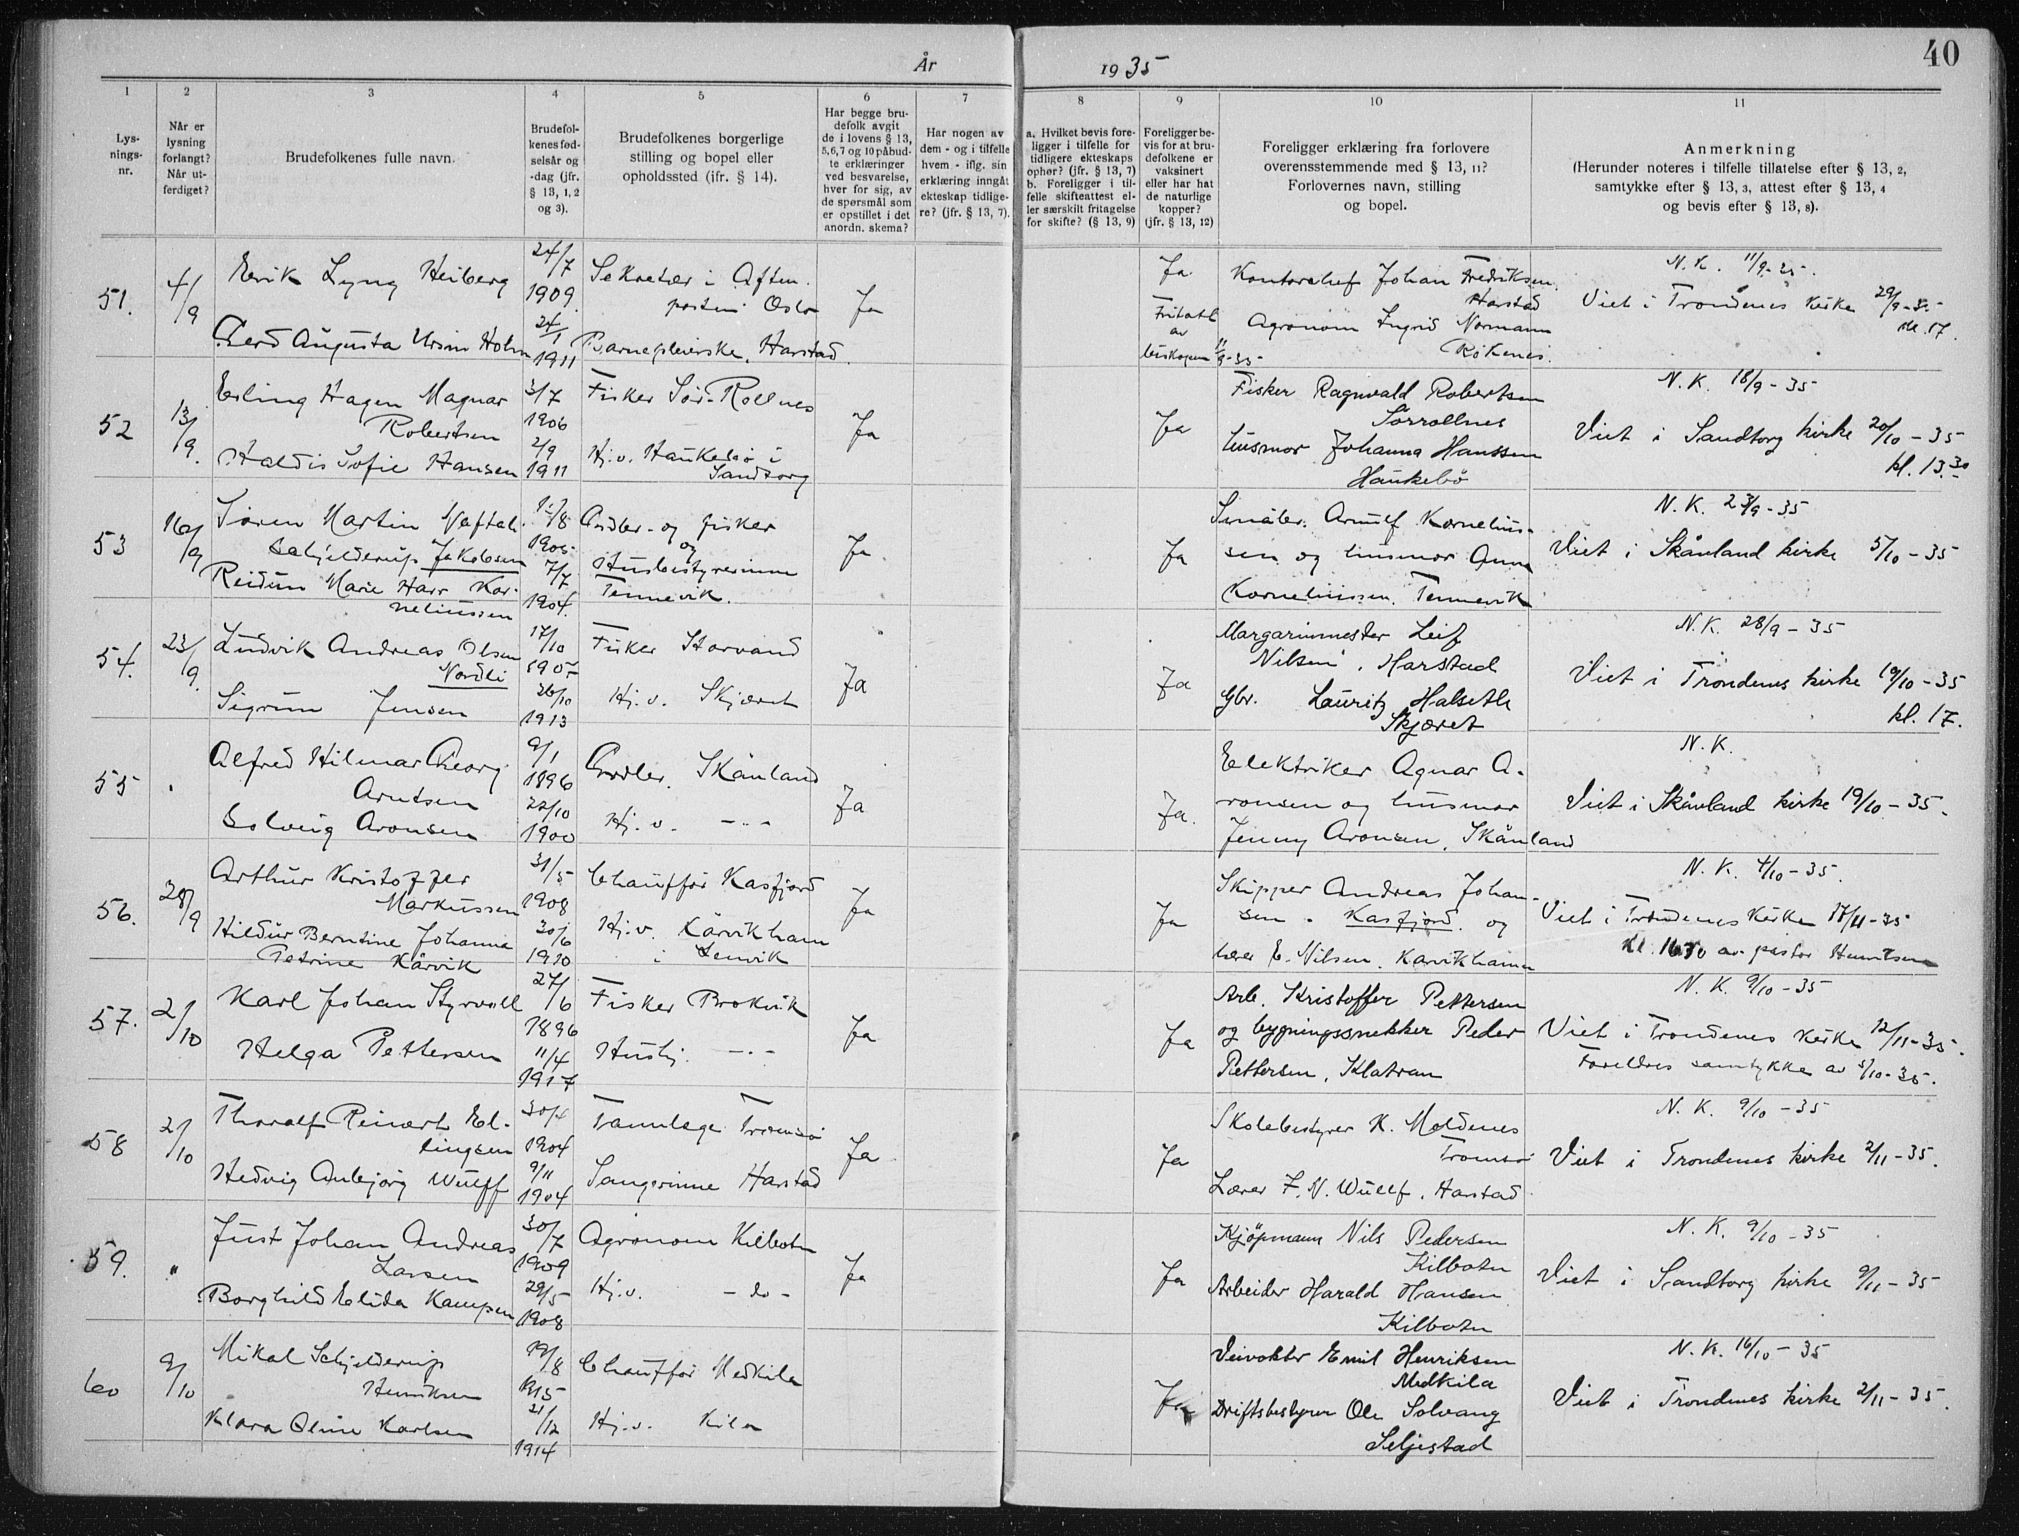 År 1935
40
1
2
3
4
5
6
7
8
9
10
11
Lys-
nings-
nr.
Når er
lysning
forlangt?
Når ut-
ferdiget?
Brudefolkenes fulle navn.
Brudefol-
kenes fød-
selsår og
-dag (jfr.
§ 13, 1, 2
og 3).
Brudefolkenes borgerlige
stilling og bopel eller
opholdssted (ifr. § 14).
Har begge bru-
defolk avgit
de i lovens § 13,
5,6,7 og 10 påbud-
te erklæringer
ved besvarelse,
hver for sig, av
de spørsmål som
er opstillet i det
anordn. skema?
Har nogen av
dem - og i tilfelle
hvem - iflg. sin
erklæring inngåt
ekteskap tidlige-
re? (jfr. § 13, 7).
a. Hvilket bevis fore-
ligger i tilfelle for
tidligere ekteskaps
ophør? (jfr. § 13, 7)
b. Foreligger i til-
felle skifteattest el-
ler særskilt fritagelse
for skifte? (§ 13, 9)
Foreligger be-
vis for at bru-
defolkene er
vaksinert
eller har hat
de naturlige
kopper?
(jfr. § 13, 12)
Foreligger erklæring fra forlovere
overensstemmende med § 13, 11?
Forlovernes navn, stilling
og bopel.
Anmerkning
(Herunder noteres i tilfelle tillatelse efter § 13, 2,
samtykke efter § 13, 3, attest efter § 13, 4
og bevis efter § 13, 8).
51.
4/9
Eerik Lyng Heiberg
24/7
1909.
Sekretær i Aften
posten Oslo
Ja
Gerd Augusta Ursin Holm
24/1
1911
Barnepleierske, Harstad.
Ja
Fritatt
av
biskopen 11/9-35
Kontorchef Johan Fredriksen.
Harstad
Agronom Ingrid Normann
Rökenes.
N.K. 11/9-35.
Viet i Trondenes kirke 29/9-35
kl. 17.
52
13/9.
Erling Hagen Magnar
Robertsen
3/7
1906
Fisker Sör-Rollnes
Ja
Haldis Sofie Hansen
2/9
1911
Hj.v. Haukebö i
Sandtorg
Ja
Fisker Ragnvald Robertsen
Sörrollnes
husmor Johanna Hanssen
Haukebö
N.K. 18/9-35
Viet i Sandtorg kirke 20/10-35
kl. 13.30
53
16/9
Sören Martin Naftal
Schjelderup Jakobsen
/8
1905
Grdbr. og fisker
og
Ja.
Reidun Marie Harr Kor-
neliussen
7/7
1904.
Husbestyrerinne
Tennevik.
Ja
Småbr. Arnulf Kornelius-
sen og husmor Anna
Korneliussen. Tennevik
N.K. 23/9-35
Viet i Skånland kirke 5/10-35
54.
23/9.
Ludvik Andreas Olsen
Nordli
17/10
1905
Fisker Storvand
Ja
Sigrun Jensen
26/10
1913
Hj.v. Skjæret
Ja
Margarinmester Leif
Nilsen, Harstad
Gbr. Lauritz Halseth
Skjæret
N.K. 28/9-35
Viet i Trondenes kirke 19/10-35
kl. 17.
55
"
Alfred Hilmar Georg
Arntsen
9/1
1896
Grdbr. Skånland
Ja
Solveig Aronsen
22/10
1900
Hj.v. -"-
Ja.
Elektriker Agnar A-
ronsen og husmor
Jenny Aronsen, Skånland
N.K.
Viet i Skånland kirke 19/10-35.
56.
28/9
Arthur Kristoffer
Markussen
31/5
1908
Chauffør Kasfjord
Ja
Hildur Berntine Johanna
Petrine Kårvik
30/6
1910
Hj.v. Kårvikhamn
i Lenvik
Ja
Skipper Andreas Johan-
sen. Kasfjord. og
lærer E. Nilsen. Karvikhamn
N.K. 4/10-35.
Viet i Trondenes kirke 17/11-35
kl. 1630 av pastor Henriksen
57.
2/10
Karl Johan Styrvoll
27/6
1896
Fisker Brokvik
Ja
Helga Pettersen
11/4
1917
Hushj. -"-
Ja
Arb. Kristoffer Pettersen
og bygningssnekker Peder
Pettersen, Klatran
N.K. 9/10-35
Viet i Trondenes kirke 12/11-35.
Foreldres samtykke av 5/10-35.
58
2/10
Thoralf Reinert El-
lingsen
30/4
1904
Tannlæge Tromsö
Ja
Hedvig Anbjörg Wulff
9/11
1904
Sangerinne Harstad
Ja
Skolebestyrer K. Moldenes
Tromsö
Lærer F.N. Wulff, Harstad
N.K. 9/10-35
Viet i Trondenes kirke 2/11-35.
59.
"
Just Johan Andreas
Larsen
30/7
1909
Agronom Kilbotn
Ja
Borghild Elida Kampen
29/5
1908
Hj.v. -do-
Ja
Kjöpmann Nils Pedersen
Kilbotn
Arbeider Harald Hansen
Kilbotn
N.K. 9/10-35
Viet i Sandtorg kirke 9/11-35
60
9/10
Mikal Schjelderup
Henriksen
19/8
1915
Chauffør Medkila
Klara Oline Karlsen
21/12
1914
Hj.v. Kila
Ja
Veivokter Emil Henriksen
Medkila
Driftsbestyrer Ole Solvang
Seljestad
N.K. 16/10-35
Viet i Trondenes kirke 2/11-35.